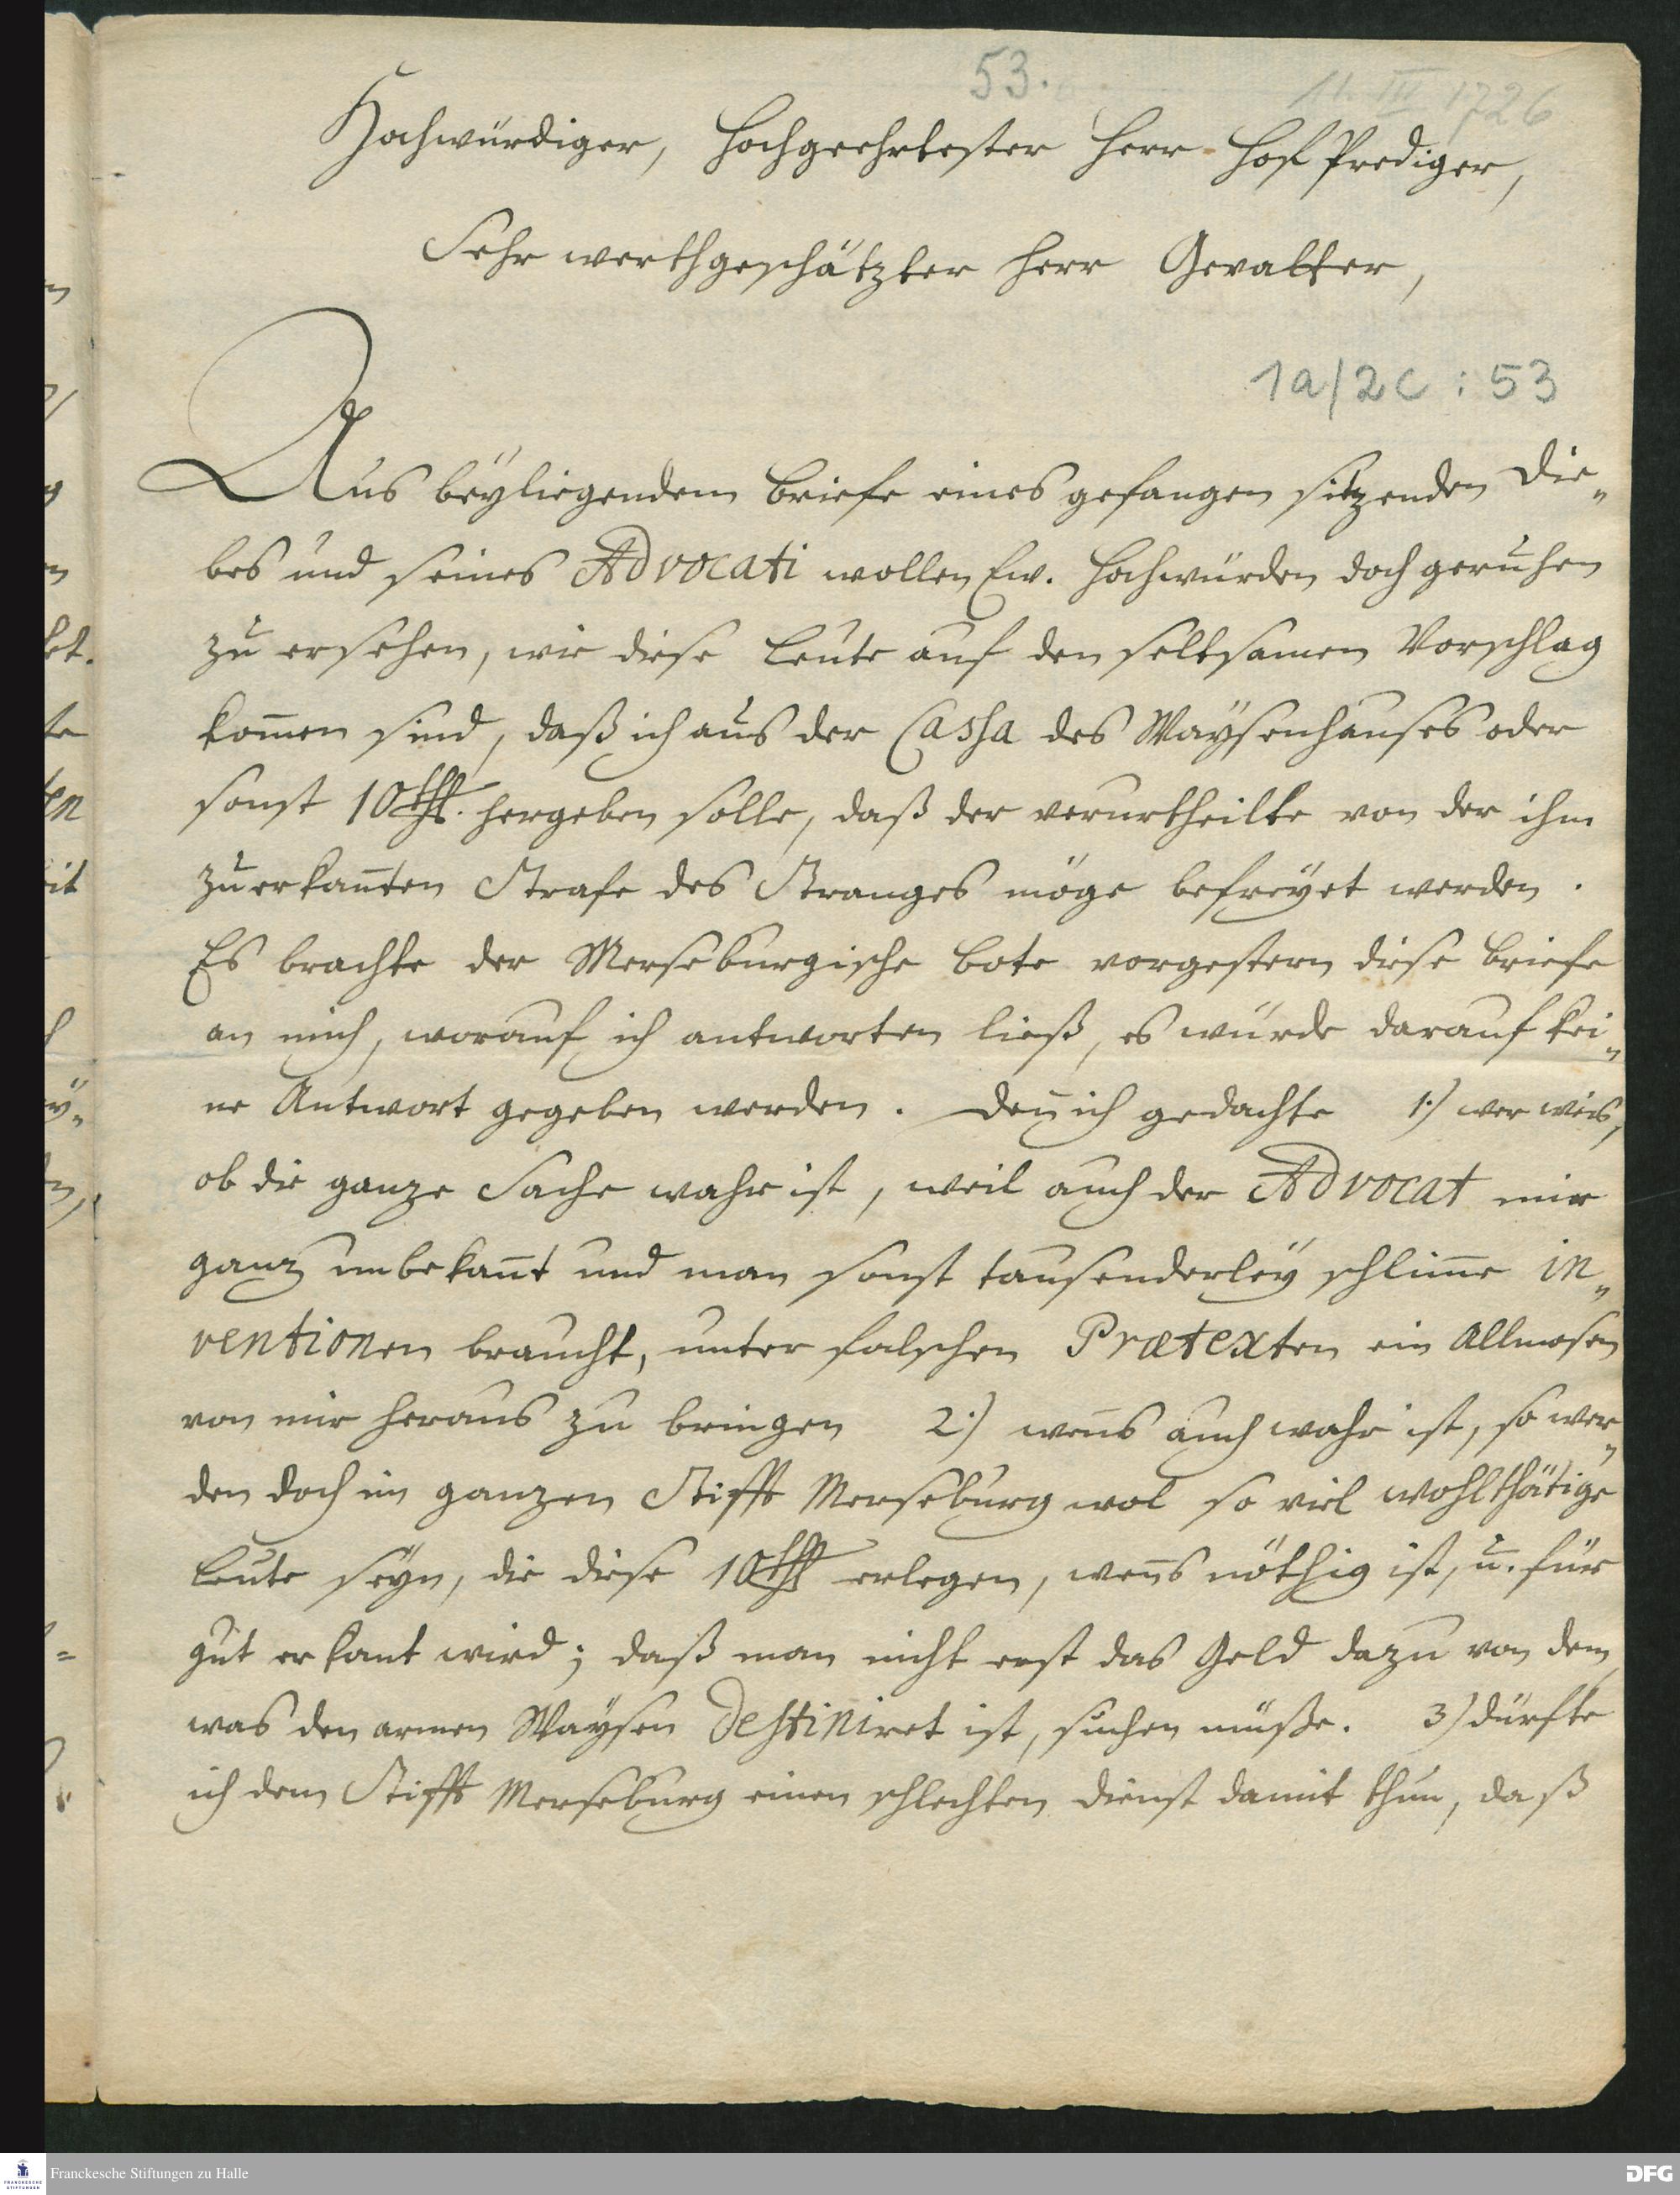 53.
11. III 1726
Hochwürdiger, Hochgeehrtester Herr Hof Prediger,
Sehr werthgeschätzter Herr Gevatter,
1a/2c : 53
Aus beÿliegendem Briefe eines gefangen sitzenden Die„
bes und seines Advocati wollen Ew. Hochwürden doch geruhen
zu ersehen, wie diese Leute auf den seltsamen Vorschlag
kom̄en sind, daß ich aus der Cassa des Waÿsenhauses oder
sonst 10 Thl. hergeben solle, daß der verurtheilte von der ihm
zuerkan̄ten Strafe des Stranges möge befreÿet werden.
Es brachte der Merseburgische Bote vorgestern diese Briefe
an mich, worauf ich antworten ließ, es würde darauf kei„
ne Antwort gegeben werden. Den̄ ich gedachte 1.) wer weis,
ob die ganze Sache wahr ist, weil auch der Advocat mir
ganz unbekan̄t und man sonst tausenderleÿ schlim̄e in„
ventionen braucht, unter falschen Prætexten ein Allmosen
von mir heraus zu bringen 2.) wen̄s auch wahr ist, so wer„
den doch im ganzen Stifft Merseburg wol so viel wohlthätige
Leute seÿn, die diese 10 Thl erlegen, wen̄s nöthig ist, u. für
gut erkant wird; daß man nicht erst das Geld dazu von dem
was den armen Waÿsen destiniret ist, suchen müße. 3.) dürfte
ich dem Stifft Merseburg einen schlechten Dienst damit thun, daß
Franckesche Stiftungen zu Halle
FRANCKESCHE
STIFTUNGEN
DFG